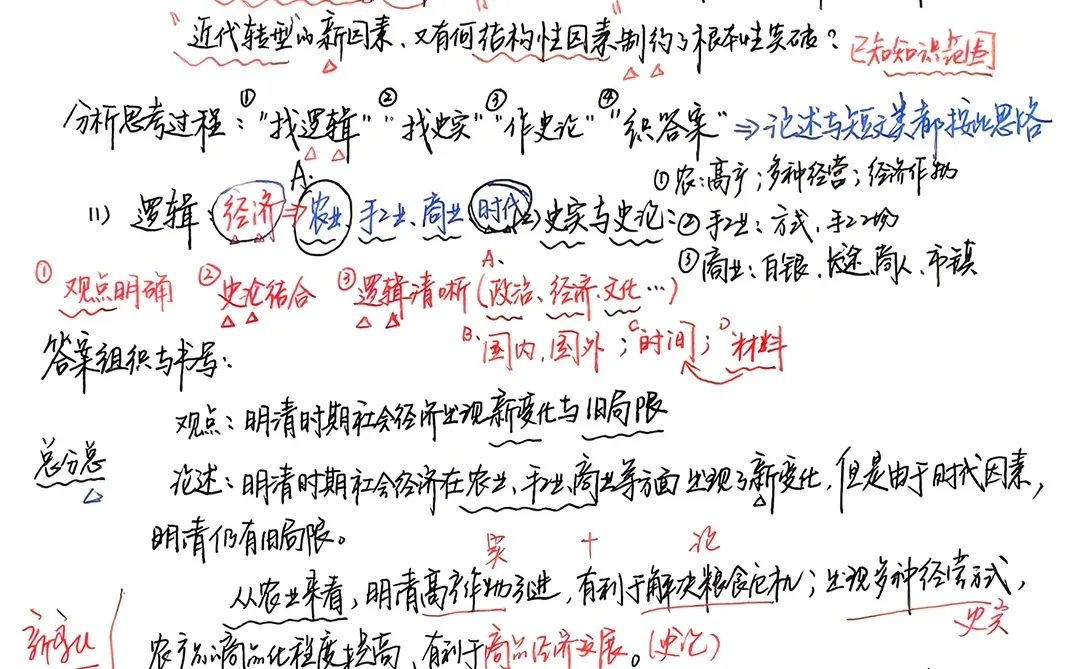 "近代转型"的新因素、又有何结构性因素制约了根本性突破？ 已知知识范围
分析思考过程：①"找逻辑" ②"找史实" ③"作史论" ④"织答案" ⇒ 论述与短文类都按此思路
A. ①农：高产；多种经营；经济作物
(1) 逻辑：经济⇒农业、手工业、商业 时代 (2) 史实与史论：②手工业：方式、手工工场
③商业：白银、长途、商人、市镇
①观点明确 ②史论结合 ③逻辑清晰（A.政治、经济、文化…）
B. 国内、国外；C 时间；D 材料
答案组织与书写：
观点：明清时期社会经济出现新变化与旧局限
总分总
论述：明清时期社会经济在农业、手工业、商业等方面出现了新变化，但是由于时代因素，
明清仍有旧局限。
实 + 论
从农业来看，明清高产作物引进，有利于解决粮食危机；出现多种经营方式，
史实
新变化
农产品商品化程度提高，有利于商品经济发展。（史论）